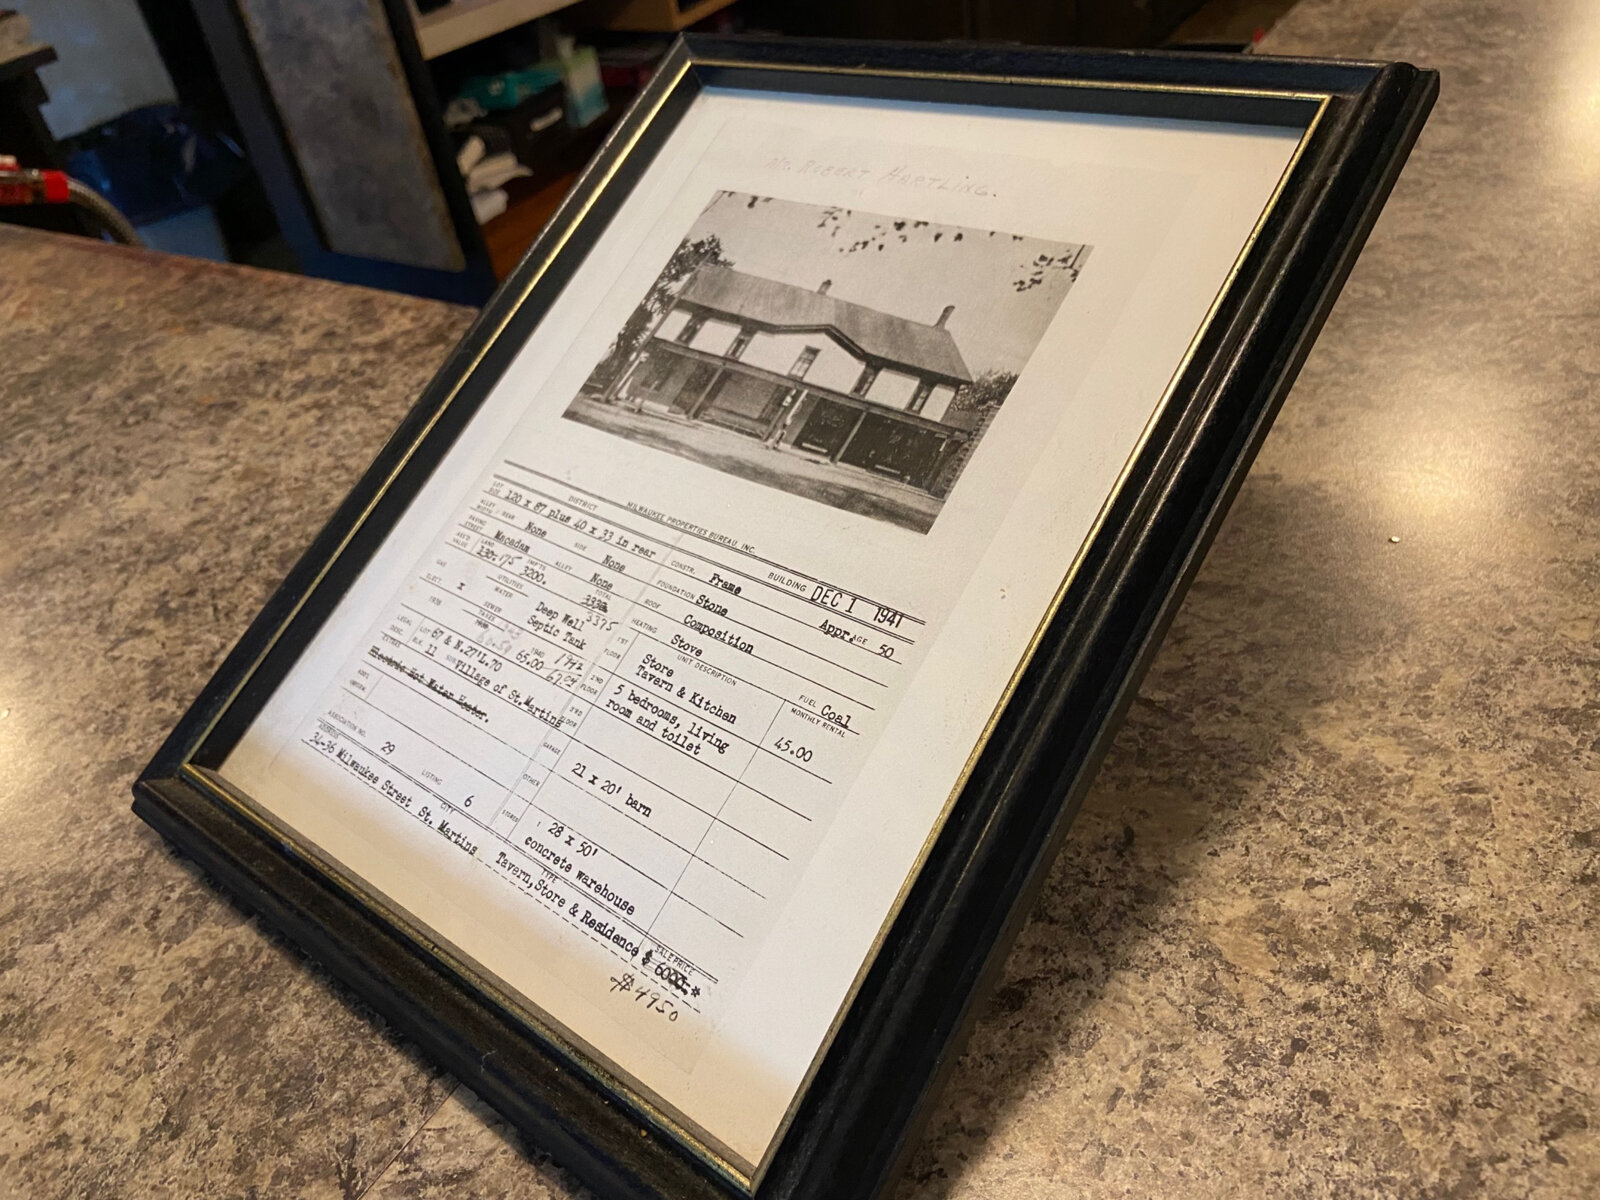 MR. ROBERT HARTLING.
DISTRICT MILWAUKEE PROPERTIES BUREAU, INC. BUILDING DEC 1 1941
LOT SIZE 120 x 87 plus 40 x 33 in rear CONSTR. Frame Appr. AGE 50
ALLEY WIDTH / REAR None SIDE None FOUNDATION Stone
PAVING STREET Macadam ALLEY None ROOF Composition
ASS'D VALUE LAND 175 IMP'TS 3200. TOTAL 3375 HEATING Stove FUEL Coal
GAS UTILITIES WATER Deep Well UNIT DESCRIPTION MONTHLY RENTAL
ELECT. x SEWER Septic Tank 1ST FLOOR Store
Tavern & Kitchen 45.00
1938 TAXES 1940 65.00 1942 67.04 2ND FLOOR 5 bedrooms, living
room and toilet
LEGAL DESC. LOT 67 & N.27'L.70
BLK 11 SUB Village of St.Martins 3RD FLOOR
EXTRAS Electric Hot Water Heater. GARAGE 21 x 20' barn
ADD'L INFORM. OTHER 28 x 50'
concrete warehouse
ASSOCIATION NO. 29 LISTING 6 STORES
ADDRESS CITY TYPE SALE PRICE
34-36 Milwaukee Street St. Martins Tavern, Store & Residence $ 6000.*
$4950